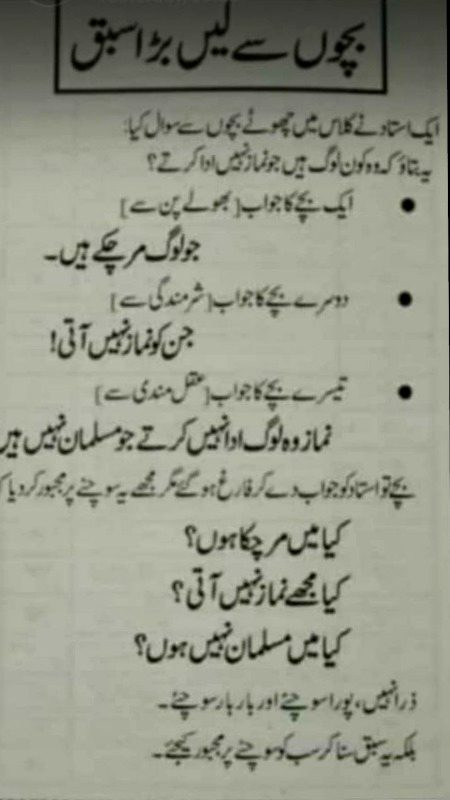 بچوں سے لیں بڑا سبق
ایک استاد نے کلاس میں چھوٹے بچوں سے سوال کیا:
یہ بتاؤ کہ وہ کون لوگ ہیں جو نماز نہیں ادا کرتے؟
● ایک بچے کا جواب [بھولے پن سے]
جو لوگ مر چکے ہیں۔
● دوسرے بچے کا جواب [شرمندگی سے]
جن کو نماز نہیں آتی!
● تیسرے بچے کا جواب [عقل مندی سے]
نماز وہ لوگ ادا نہیں کرتے جو مسلمان نہیں ہیں
بچے تو استاد کو جواب دے کر فارغ ہو گئے مگر مجھے یہ سوچنے پر مجبور کر دیا
کیا میں مر چکا ہوں؟
کیا مجھے نماز نہیں آتی؟
کیا میں مسلمان نہیں ہوں؟
ذرا نہیں، پورا سوچئے اور بار بار سوچئے۔
بلکہ یہ سبق سنا کر سب کو سوچنے پر مجبور کیجئے۔